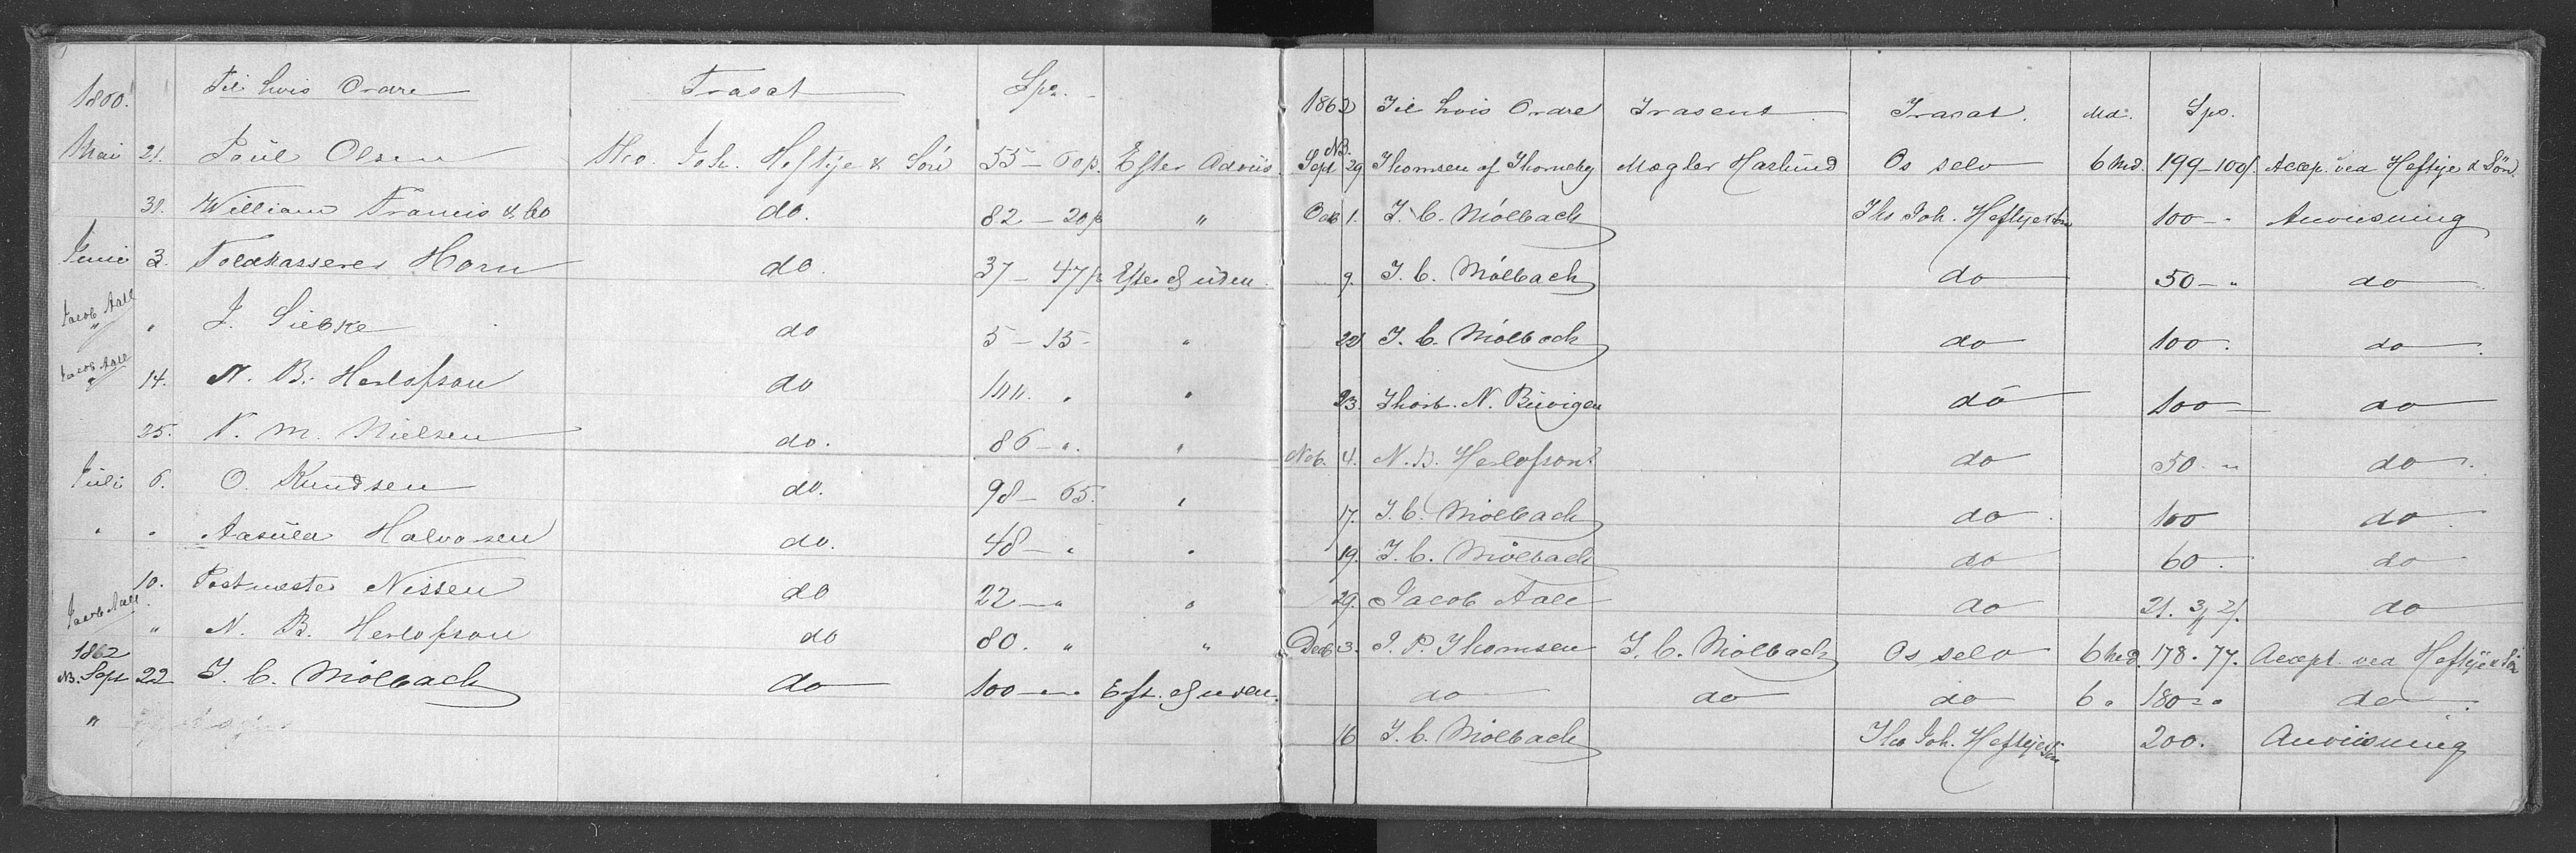 1860. Til hvis Ordre Trasat Sps.
Mai 21. Poul Olsen Tho. Joh. Heftye & Søn 55 - 60 p. Efter Advis.
31. William Francis & Co do. 82 - 20 p "
Juni 3. Toldkasserer Horn do. 37 - 47 p Efter og uden.
Jacob Aall
" " J. Siebke do 5 - 15 - "
Jacob Aall
" 14. N. B. Herlofson do 100. " "
25. N. M. Nielsen do. 86 - " "
Juli 6. O. Knudsen do. 98 - 65. "
" " Aasula Halvorsen do. 48 - " "
10. Postmester Nissen do 22 - " "
Jacob Aall
" N. B. Herlofson do 80. " "
1862
NB. Sept 22 J. C. Mølbach do 100 - " Eft. og uden.
"
1862 Til hvis Ordre Trasent Trasat. Md. Sps.
NB.
Sept 29 Thomsen af Thorneby Mægler Haslund Os selv 6 Md. 199 - 100 p. Accep. ved Heftye & Søn.
Octb 1. J. C. Mølbach Tho Joh. Heftye & Søn 100 - " Anvisning
" 9. J. C. Mølbach do 50 - " do
22 J. C. Mølbach do 100. do
23. Thorb. N. Buvigen do 100 - do
Nvb. 4. N. B. Herlofson do 50 - " do
17. J. C. Mølbach do 100 do
19. J. C. Mølbach do 60. do
29. Jacob Aall do 21. 3/ 21. do
Decb 3. J. P. Thomsen J. C. Mølbach Os selv 6 Md 178. 77. Accept. ved Heftye & Søn
do do do 6 " 180 - " do
16 J. C. Mølbach Tho Joh. Heftye & Søn 200. Anvisning